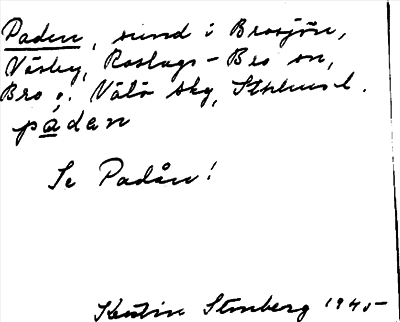 Paden, sund i Brosjön,
Väsby, Roslags-Bro sn,
Bro o. Vätö skg, Sthlms l.
pȧdan
Se Padån!
Kerstin Stenberg 1945